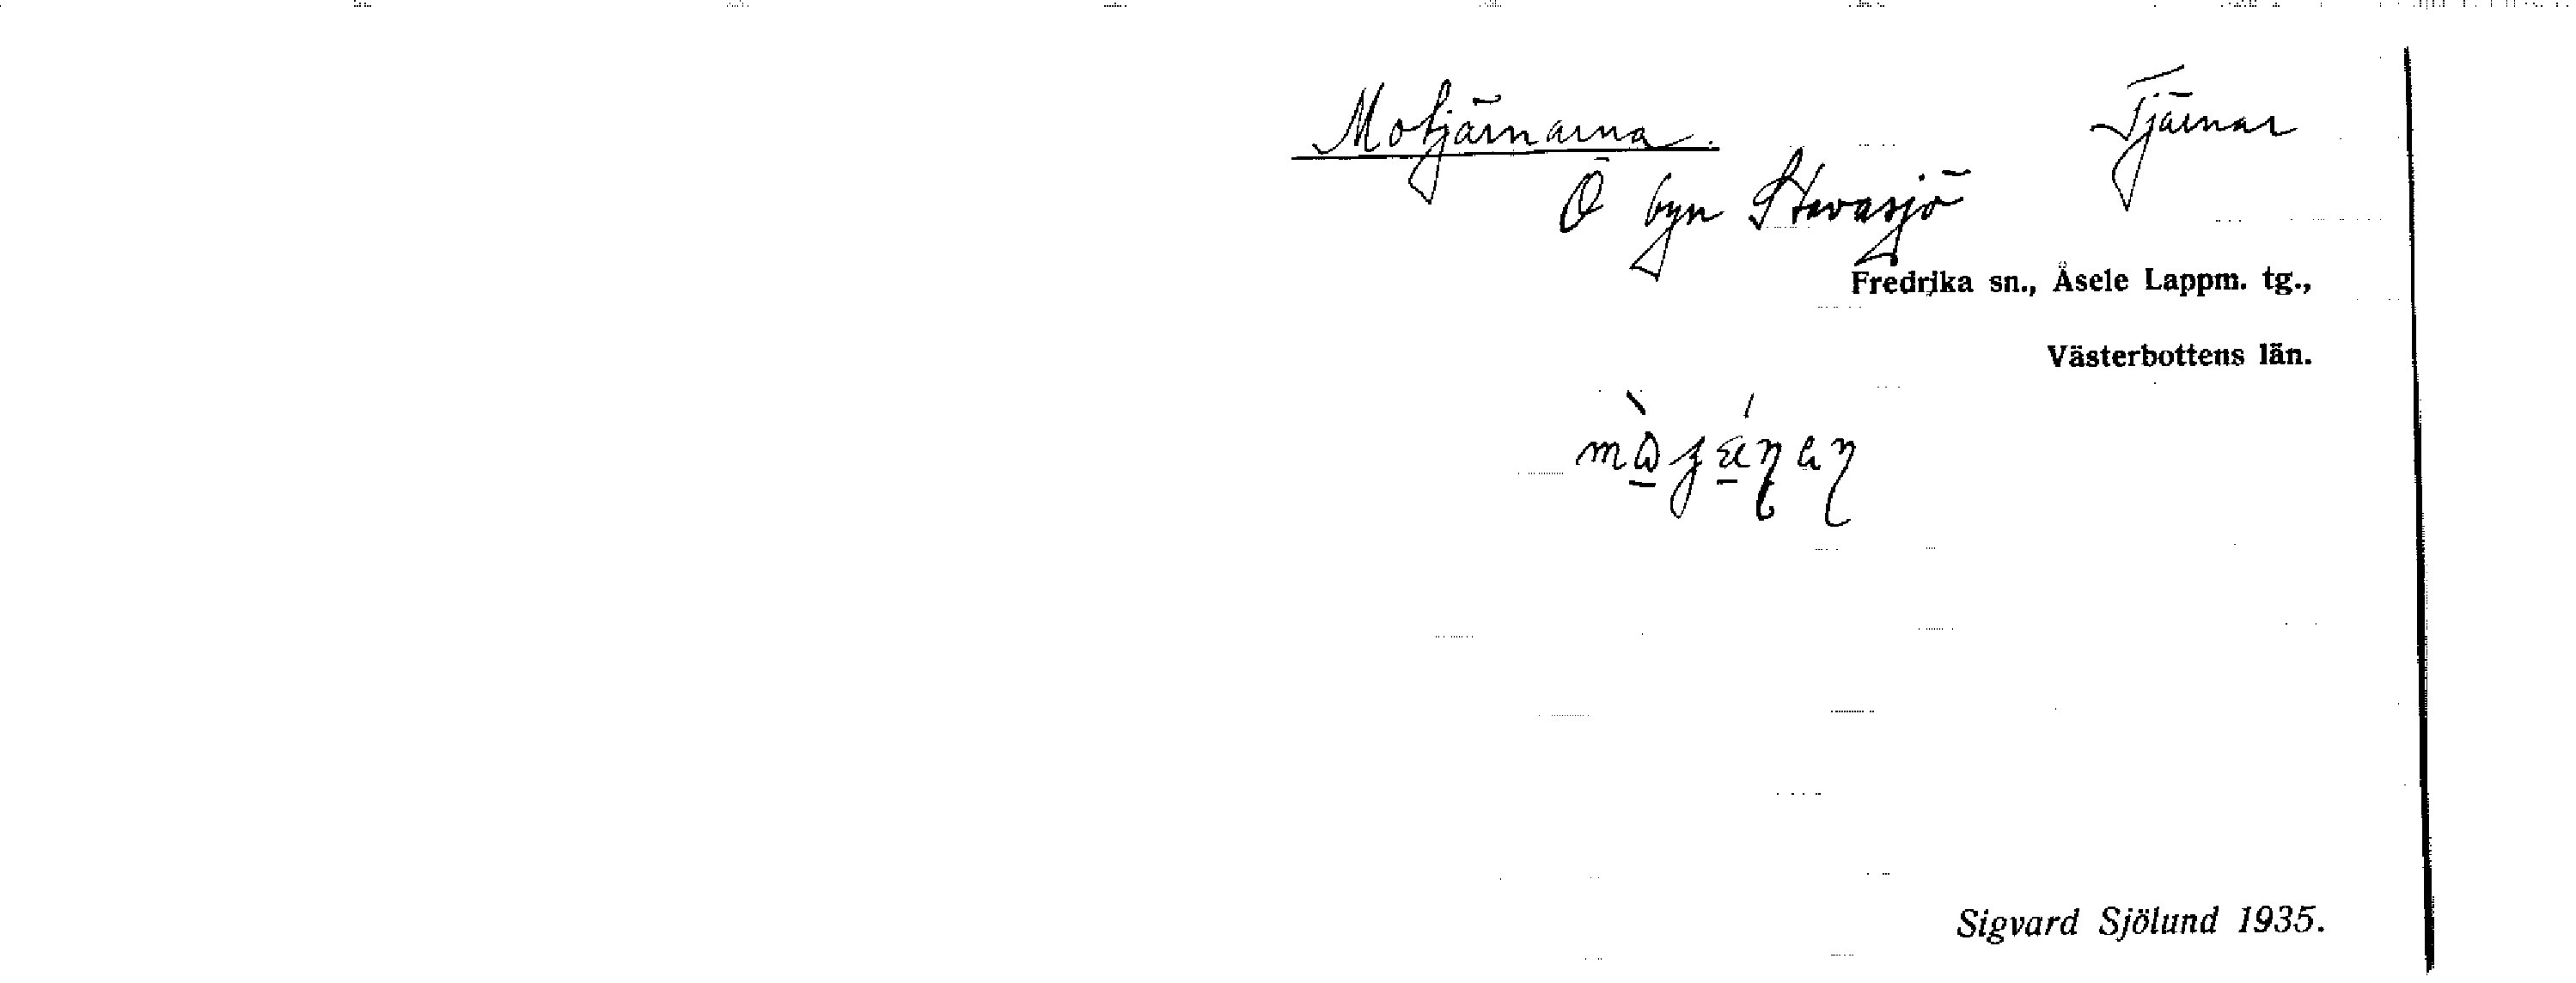 Motjärnarna. Tjärnar
Ö byn Stavasjö
Fredrika sn., Åsele Lappm. tg.,
Västerbottens län.
Sigvard Sjölund 1935.